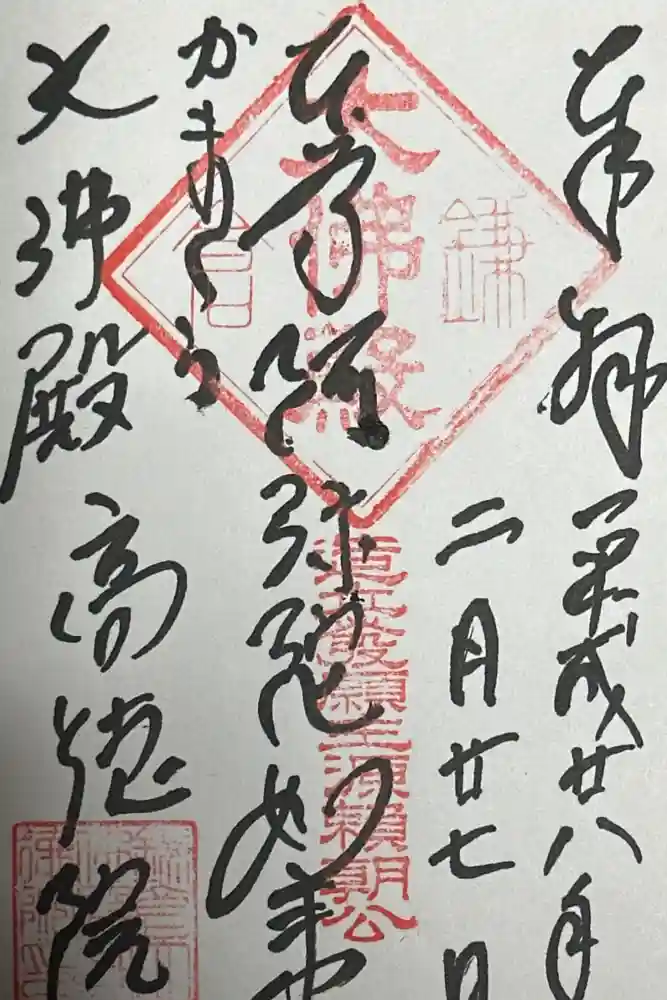 奉拝 平成廿八年
二月廿七日
本尊阿弥陀如来
かまくら
大佛殿 高徳院
鎌倉
大佛殿
源頼朝公